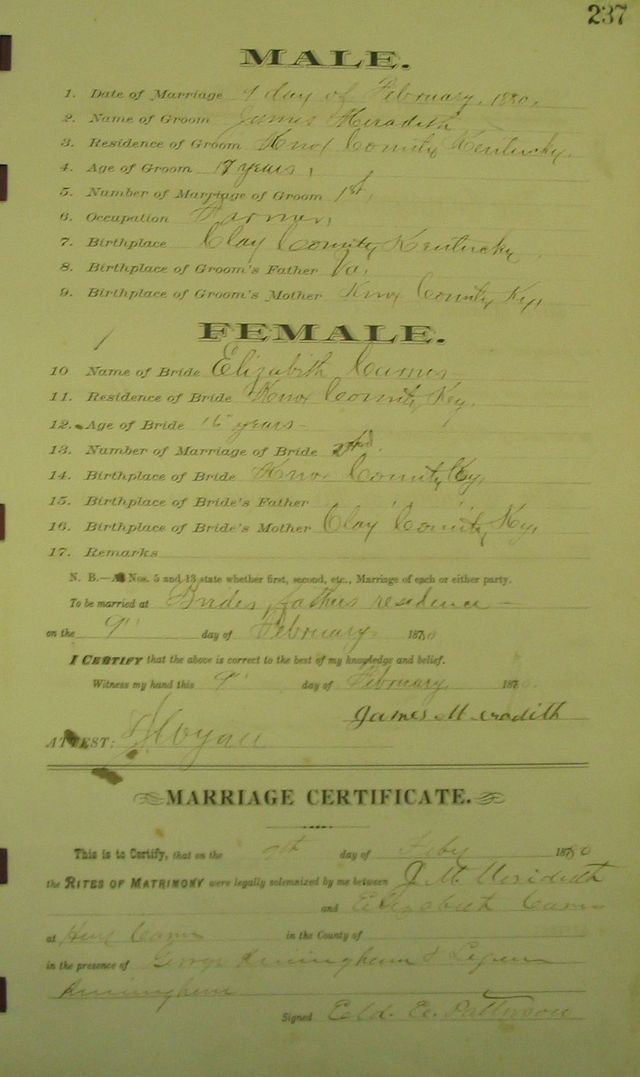 237
MALE.
1. Date of Marriage 9 day of February, 1880,
2. Name of Groom James Meradith
3. Residence of Groom Knox County, Kentucky.
4. Age of Groom 17 years,
5. Number of Marriage of Groom 1st,
6. Occupation Farmer,
7. Birthplace Clay County, Kentucky,
8. Birthplace of Groom's Father Va.
9. Birthplace of Groom's Mother Knox County Ky,
FEMALE.
10. Name of Bride Elizabith
11. Residence of Bride Knox County, Key.
12. Age of Bride years-
13. Number of Marriage of Bride
14. Birthplace of Bride Knox County, Ky,
15. Birthplace of Bride's Father " " "
16. Birthplace of Bride's Mother Clay County, Ky,
17. Remarks
N. B.—At Nos. 5 and 13 state whether first, second, etc., Marriage of each or either party.
To be married at Brides fathers residence -
on the 9" day of February 1880
I CERTIFY that the above is correct to the best of my knowledge and belief.
Witness my hand this 9" day of February 1880
James Meradith
ATTEST:
MARRIAGE CERTIFICATE.
This is to Certify, that on the 9th day of Feby 1880
the RITES OF MATRIMONY were legally solemnized by me between J. M. Merideth
and Elizabeth
at in the County of
in the presence of George &
Signed Eld. E. Patterson